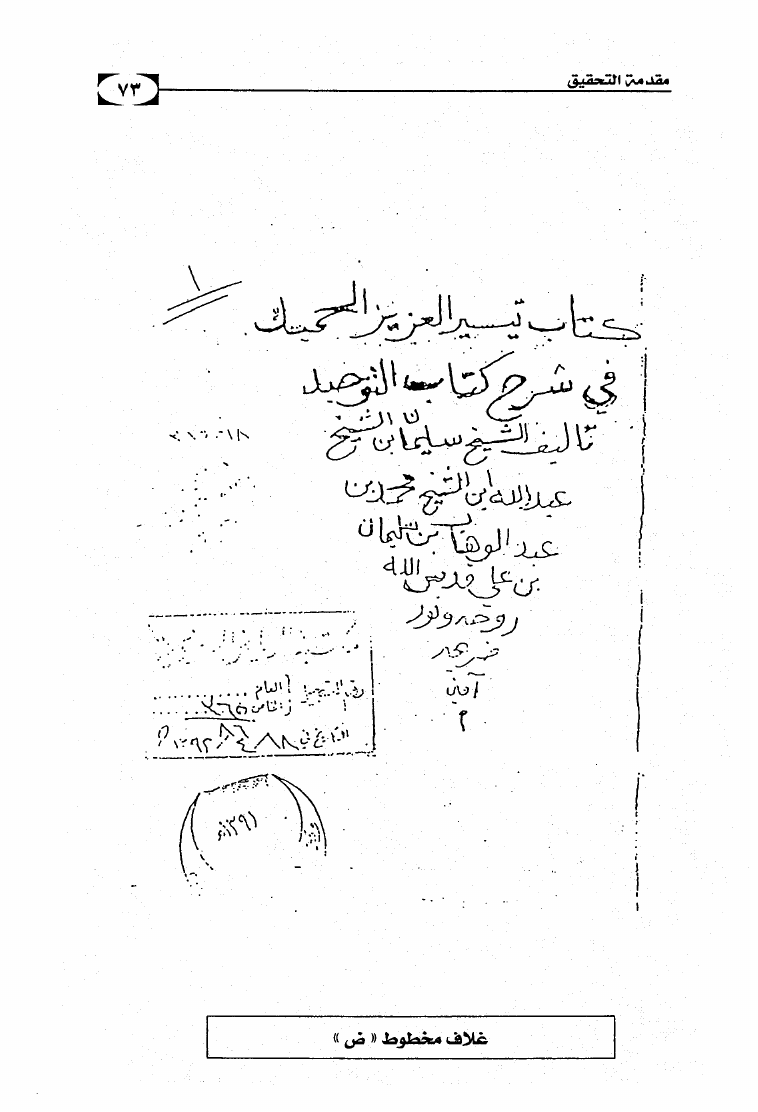 مقدمة التحقيق
٧٣
١
كتاب تيسير العزيز الحميد
في شرح كتاب التوحيد
تأليف الشيخ سليمان ابن الشيخ
عبد الله ابن الشيخ محمد بن
عبد الوهاب بن سليمان
بن علي قدس الله
روحه ونور
ضريحه
آمين
م
رقم التسجيل العام
الخاص ٣٦٥
التاريخ في
١٣٩١
غلاف مخطوط « ض »